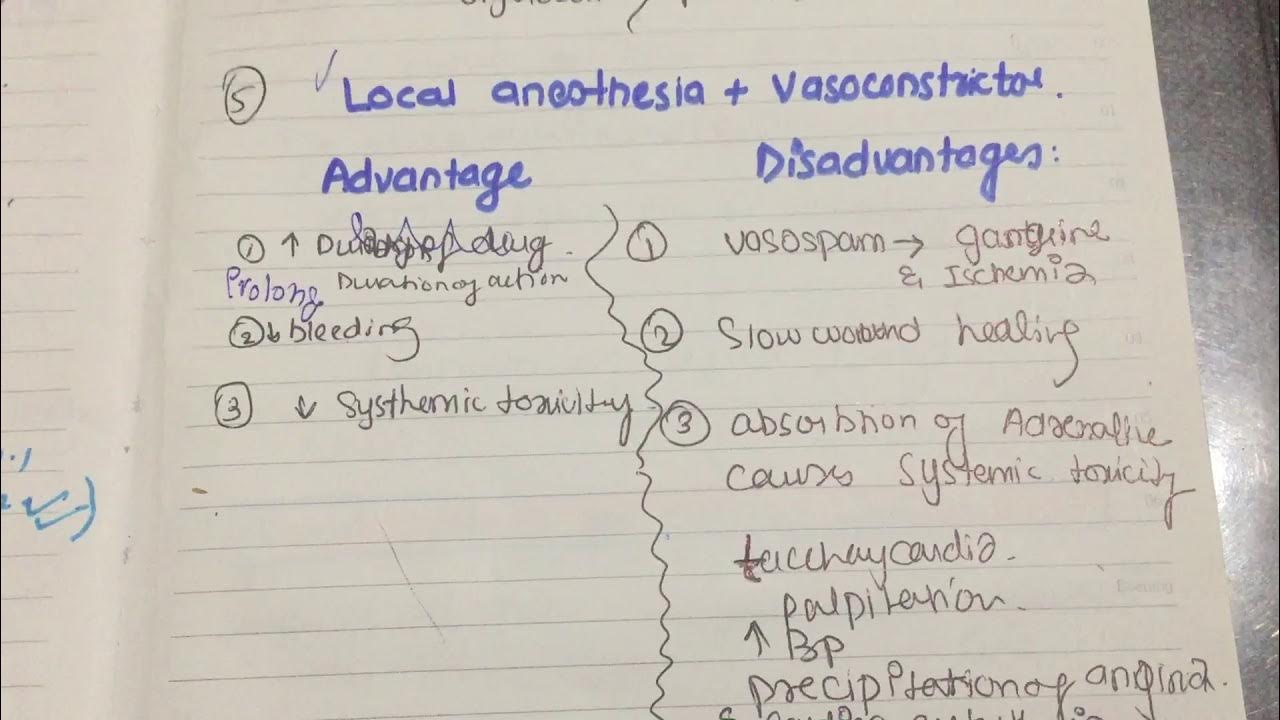 ⑤ ✓ Local aneothesia + Vasoconstrictor.
Advantage
① ↑ drug.
Prolong Duration of action
② ↓ bleeding
③ ↓ Systhemic toxicitity
Disadvantages:
① vasospam → gangrine
& Ischemia
② Slow wound healing
③ absorbtion of Adrenaline
causes Systemic toxicity
tacchaycardia.
palpitation.
↑ BP
precipitation of angina.